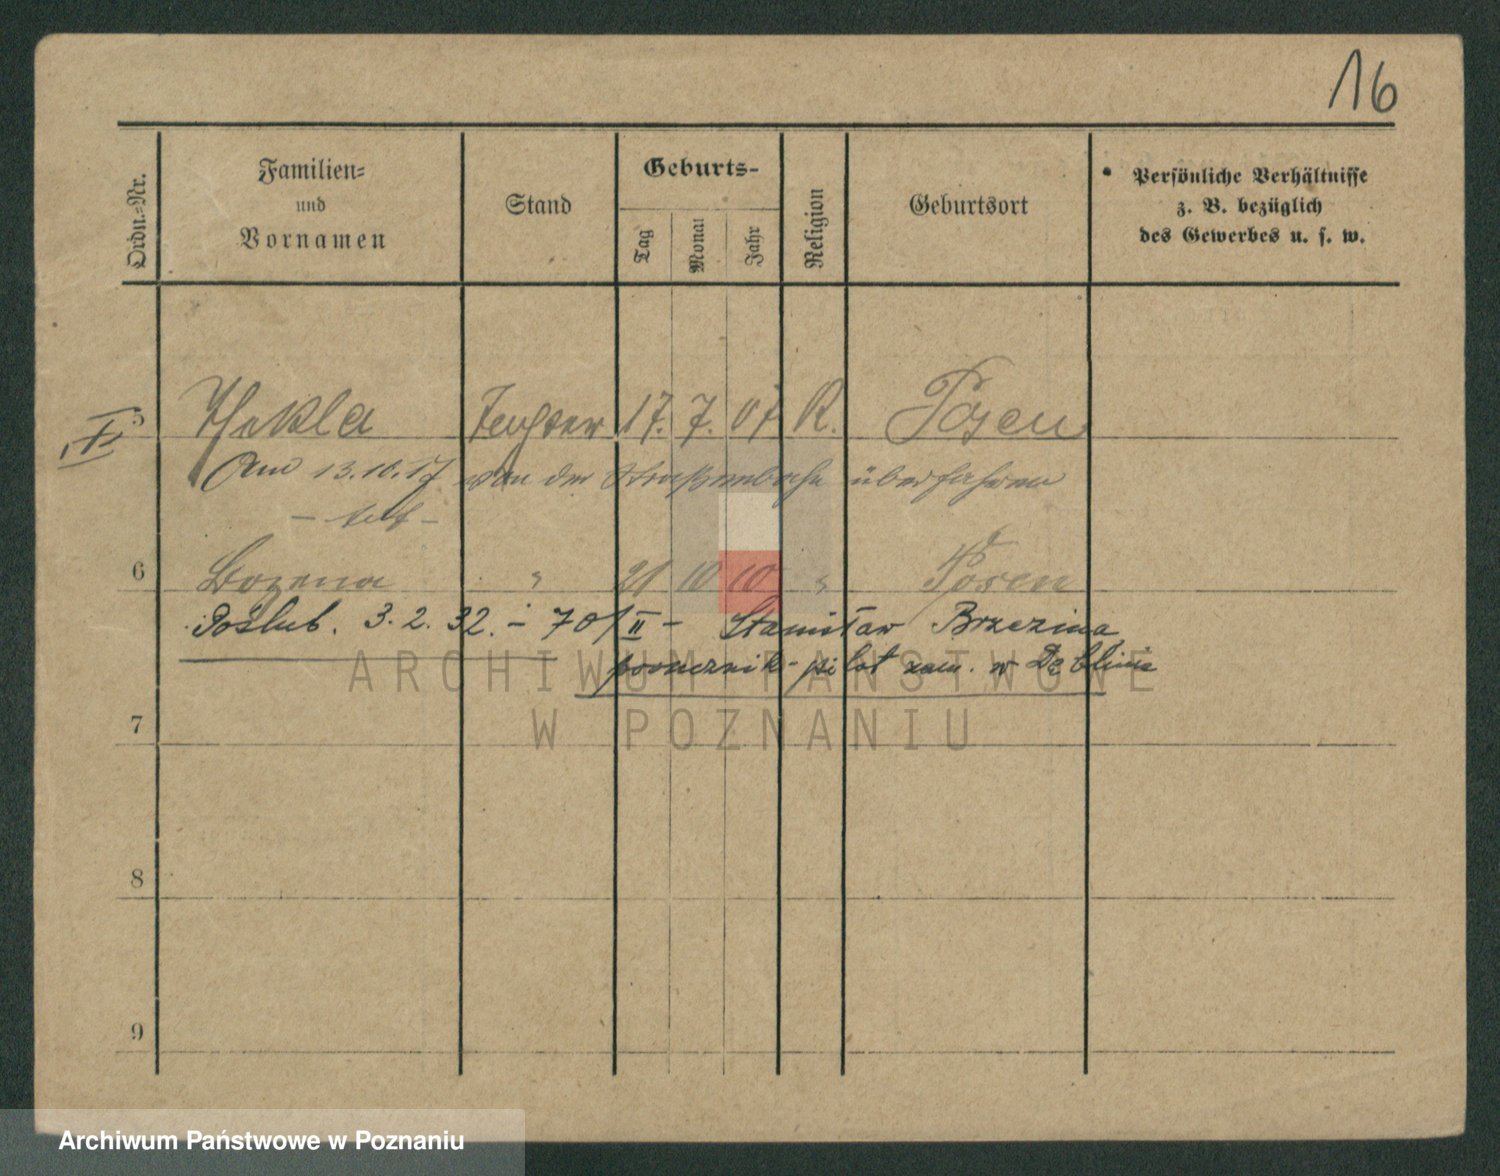 16
Ordn.-Nr.
Familien-
und
Vornamen
Stand
Geburts-
Tag
Monat
Jahr
Religion
Geburtsort
Persönliche Verhältnisse
z. B. bezüglich
des Gewerbes u. s. w.
5 Thekla Tochter 17. 7. 07 R. Posen
Am 13.10.17 von der Straßenbahn überfahren
- tot -
6 Bozena " 21 10 10 " Posen
Poślub. 3.2.32. - 701/II - Stanisław Brzezina
porucznik-pilot zam. w Dęblinie
7
8
9
ARCHIWUM PAŃSTWOWE
W POZNANIU
Archiwum Państwowe w Poznaniu